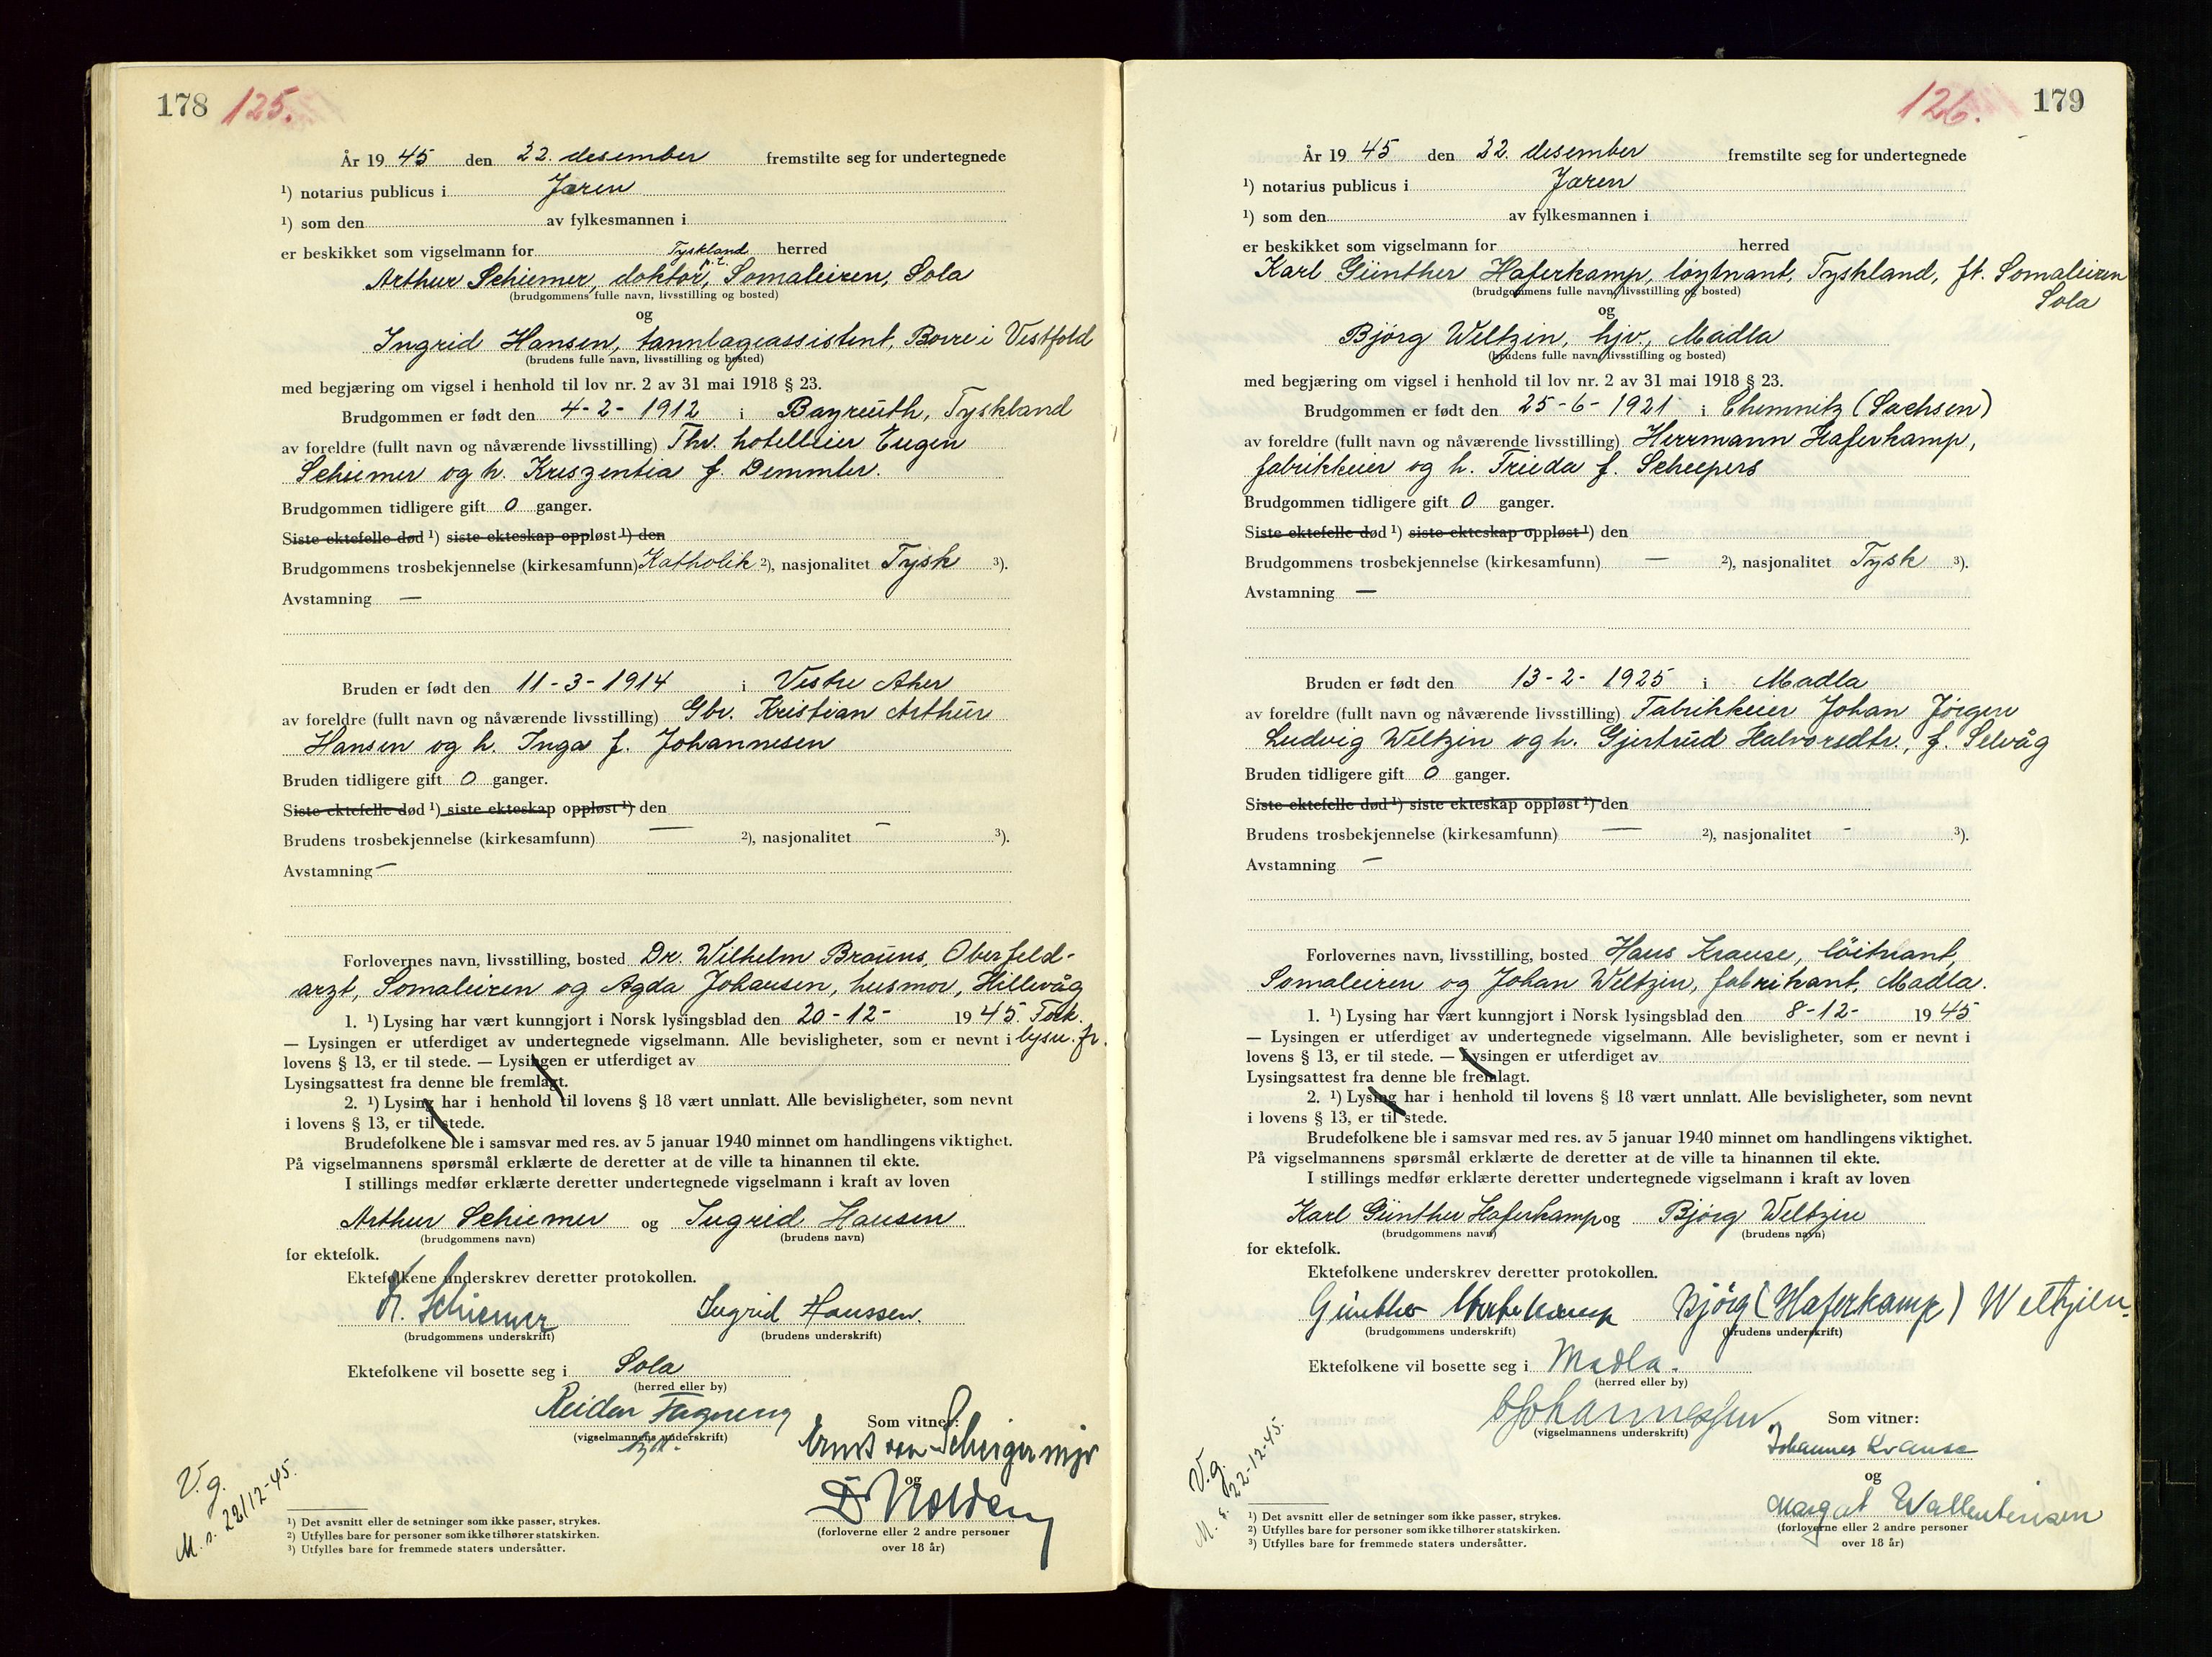 178 125.
År 19 45 den 22. desember fremstilte seg for undertegnede
¹) notarius publicus i Jæren
¹) som den av fylkesmannen i
er beskikket som vigselmann for herred
Tyskland
p.t.
Arthur Schiemer, doktor, Somaleiren, Sola
(brudgommens fulle navn, livsstilling og bosted)
og
Ingrid Hansen, tannlægeassistent, Borre i Vestfold
(brudens fulle navn, livsstilling og bosted)
med begjæring om vigsel i henhold til lov nr. 2 av 31 mai 1918 § 23.
Brudgommen er født den 4-2-1912 i Bayreuth, Tyskland
av foreldre (fullt navn og nåværende livsstilling) Thv. hotelleier Eugen
Schiemer og h. Kreszentia f. Demmler.
Brudgommen tidligere gift 0 ganger.
Siste ektefelle død ¹) siste ekteskap oppløst ¹) den
Brudgommens trosbekjennelse (kirkesamfunn) Katholik ²), nasjonalitet Tysk ³).
Avstamning —
Bruden er født den 11-3-1914 i Vestre Aker
av foreldre (fullt navn og nåværende livsstilling) Gbr. Kristian Arthur
Hansen og h. Inga f. Johannesen
Bruden tidligere gift 0 ganger.
Siste ektefelle død ¹) siste ekteskap oppløst ¹) den
Brudens trosbekjennelse (kirkesamfunn) — ²), nasjonalitet — ³).
Avstamning —
Forlovernes navn, livsstilling, bosted Dr. Wilhelm Brauns, Oberfeld-
arzt, Somaleiren og Agda Johansen, husmor, Hillevåg
1. ¹) Lysing har vært kunngjort i Norsk lysingsblad den 20-12- 19 45. Fork.
— Lysingen er utferdiget av undertegnede vigselmann. Alle bevisligheter, som er nevnt i lysn. fr.
lovens § 13, er til stede. — Lysingen er utferdiget av
Lysingsattest fra denne ble fremlagt.
2. ¹) Lysing har i henhold til lovens § 18 vært unnlatt. Alle bevisligheter, som nevnt
i lovens § 13, er til stede.
Brudefolkene ble i samsvar med res. av 5 januar 1940 minnet om handlingens viktighet.
På vigselmannens spørsmål erklærte de deretter at de ville ta hinannen til ekte.
I stillings medfør erklærte deretter undertegnede vigselmann i kraft av loven
Arthur Schiemer og Ingrid Hansen
(brudgommens navn) (brudens navn)
for ektefolk.
Ektefolkene underskrev deretter protokollen.
A. Schiemer Ingrid Hanssen.
(brudgommens underskrift) (brudens underskrift)
Ektefolkene vil bosette seg i Sola
(herred eller by)
Reidar
(vigselmannens underskrift)
Som vitner:
Ernst von
og
(forloverne eller 2 andre personer
over 18 år)
V.g.
M. s. 22/12-45.
¹) Det avsnitt eller de setninger som ikke passer, strykes.
²) Utfylles bare for personer som ikke tilhører statskirken.
³) Utfylles bare for fremmede staters undersåtter.
126. 179
År 19 45 den 22. desember fremstilte seg for undertegnede
¹) notarius publicus i Jæren
¹) som den av fylkesmannen i
er beskikket som vigselmann for herred
Karl Günther Haferkamp, løytnant, Tyskland, ft. Somaleiren
Sola
(brudgommens fulle navn, livsstilling og bosted)
og
Bjørg Weltzin, hjv., Madla
(brudens fulle navn, livsstilling og bosted)
med begjæring om vigsel i henhold til lov nr. 2 av 31 mai 1918 § 23.
Brudgommen er født den 25-6-1921 i Chemnitz (Sachsen)
av foreldre (fullt navn og nåværende livsstilling) Herrmann Haferkamp,
fabrikkeier og h. Frieda f. Scheepers
Brudgommen tidligere gift 0 ganger.
Siste ektefelle død ¹) siste ekteskap oppløst ¹) den
Brudgommens trosbekjennelse (kirkesamfunn) — ²), nasjonalitet Tysk ³).
Avstamning —
Bruden er født den 13-2-1925 i Madla
av foreldre (fullt navn og nåværende livsstilling) Fabrikkeier Johan Jörgen
Ludvig Weltzin og h. Gjertrud Halvorsdtr., f. Selvåg
Bruden tidligere gift 0 ganger.
Siste ektefelle død ¹) siste ekteskap oppløst ¹) den
Brudens trosbekjennelse (kirkesamfunn) — ²), nasjonalitet - ³).
Avstamning —
Forlovernes navn, livsstilling, bosted Hans Krause, löitnant,
Somaleiren og Johan Weltzin, fabrikant, Madla.
1. ¹) Lysing har vært kunngjort i Norsk lysingsblad den 8-12- 19 45
— Lysingen er utferdiget av undertegnede vigselmann. Alle bevisligheter, som er nevnt i
lovens § 13, er til stede. — Lysingen er utferdiget av
Lysingsattest fra denne ble fremlagt.
2. ¹) Lysing har i henhold til lovens § 18 vært unnlatt. Alle bevisligheter, som nevnt
i lovens § 13, er til stede.
Brudefolkene ble i samsvar med res. av 5 januar 1940 minnet om handlingens viktighet.
På vigselmannens spørsmål erklærte de deretter at de ville ta hinannen til ekte.
I stillings medfør erklærte deretter undertegnede vigselmann i kraft av loven
Karl Günther Haferkamp og Bjørg Weltzin
(brudgommens navn) (brudens navn)
for ektefolk.
Ektefolkene underskrev deretter protokollen.
Günther Haferkamp Bjørg (Haferkamp) Weltzien.
(brudgommens underskrift) (brudens underskrift)
Ektefolkene vil bosette seg i Madla.
(herred eller by)
Johannessen
(vigselmannens underskrift)
Som vitner:
Johannes Krause
og
Margot Wallentinsen
(forloverne eller 2 andre personer
over 18 år)
V.g.
M. s. 22-12-45.
¹) Det avsnitt eller de setninger som ikke passer, strykes.
²) Utfylles bare for personer som ikke tilhører statskirken.
³) Utfylles bare for fremmede staters undersåtter.